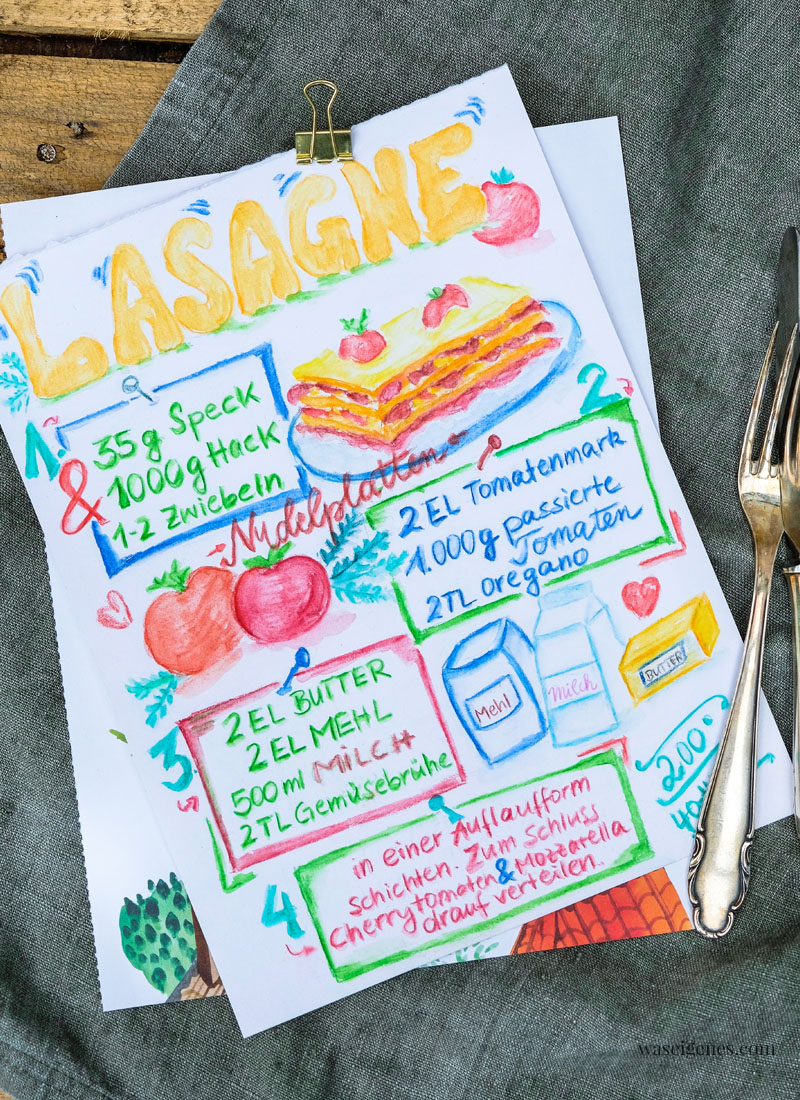 LASAGNE
1.
35g Speck
&
1000g Hack
1-2 Zwiebeln
Nudelplatten
2.
2 EL Tomatenmark
1.000g passierte
Tomaten
2TL oregano
Mehl
Milch
BUTTER
3.
2 EL BUTTER
2 EL MEHL
500 ml MILCH
2TL Gemüsebrühe
200°
40
4
in einer Auflaufform
schichten. Zum Schluss
Cherrytomaten & Mozzarella
drauf verteilen.
waseigenes.com